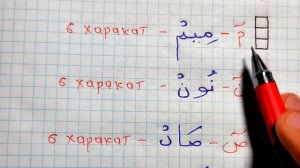 6 харакат - مِيمْ - مٓ
6 харакат - نُونْ - نٓ
6 харакат - صَادْ - صٓ